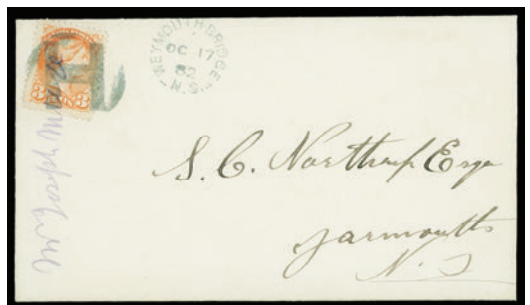 WEYMOUTH BRIDGE
OC 17
82
N.S.
3 3
S. C. Northrup Esqr
Yarmouth
N. S